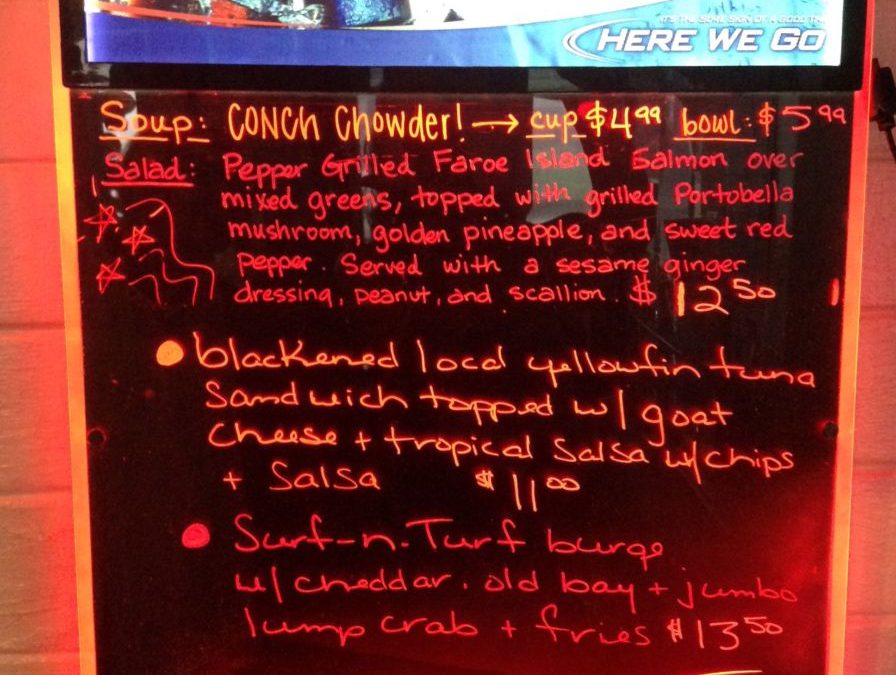 IT'S THE SURE SIGN OF A GOOD TIME
HERE WE GO
Soup: CONCH Chowder! → cup $4.99 bowl: $5.99
Salad: Pepper Grilled Faroe Island Salmon over
mixed greens, topped with grilled Portobella
mushroom, golden pineapple, and sweet red
pepper. Served with a sesame ginger
dressing, peanut, and scallion. $12.50
• blackened local yellowfin tuna
Sandwich topped w/ goat
cheese + tropical Salsa w/ chips
+ Salsa $11.00
• Surf-n-Turf burge
w/ cheddar. old bay + jumbo
lump crab + fries $13.50